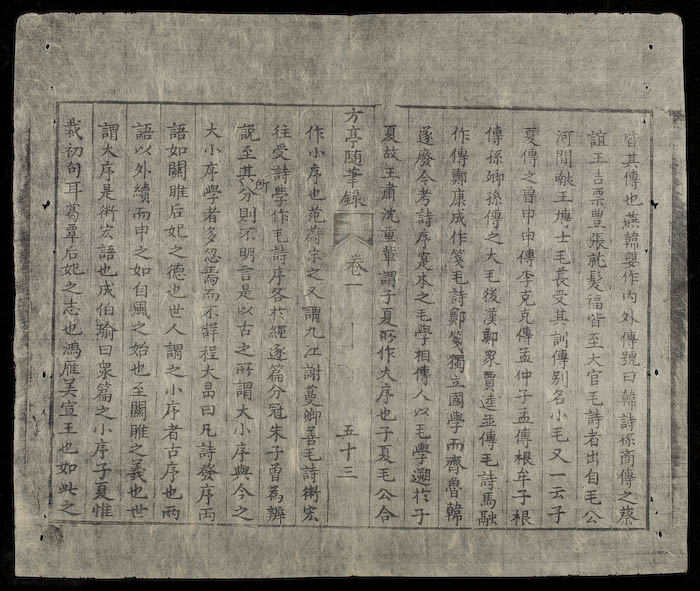 皆其傳也燕韓嬰作內外傳號曰韓詩孫商傳之蔡
誼王吉栗豊張就髮福皆至大官毛詩者出自毛公
河間獻王博士毛萇受其訓傳別名小毛又一云子
夏傳之曾申申傳李克克傳孟仲子孟傳根牟子根
傳孫卿孫傳之大毛後漢鄭衆賈逵並傳毛詩馬融
作傳鄭康成作箋毛詩鄭箋獨立國學而齊魯韓
遂廢今考詩序寔本之毛學相傳人以毛學遡於子
夏故王肅沈重輩謂子夏所作大序也子夏毛公合
方亭随筆録 卷一 五十三
作小序也范蔚宗之又謂九江謝蔓卿善毛詩衛宏
往受詩學作毛詩序各於經逐篇分冠朱子曾爲辨
說至其所分則不明言是以古之所謂大小序與今之
大小序學者多忽焉而不詳程大昌曰凡詩發序兩
語如關雎后妃之德也世人謂之小序者古序也兩
語以外續而申之如自風之始也至關雎之義也世
謂大序是衛宏語也成伯瑜曰衆篇之小序子夏惟
裁初句耳葛覃后妃之志也鴻雁美宣王也如此之